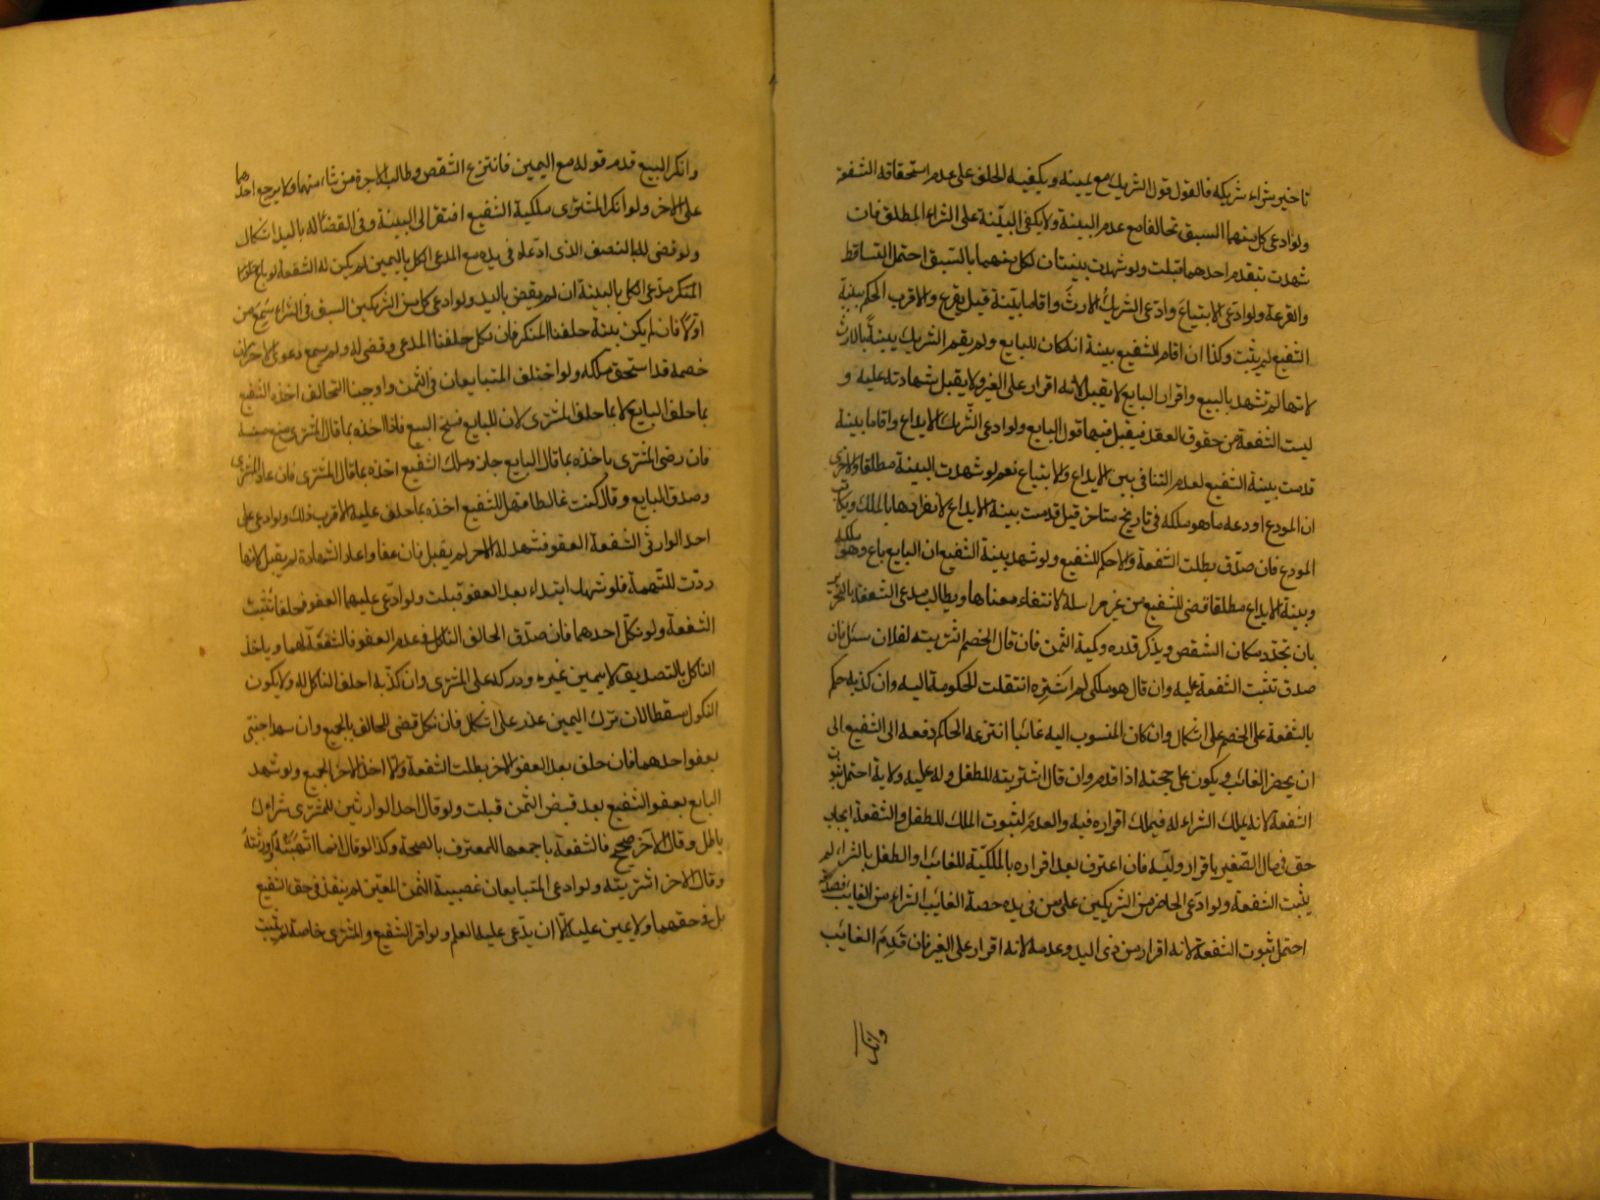 تاخير شراء شريكه فالقول قول الشريك مع يمينه ويكفيه الحلف على عدم استحقاقه الشفعة
ولو ادعى كل منهما السبق تحالفا مع عدم البينة ولا يكفى البينة على الشراء المطلق فان
شهدت بتقدم احدهما قبلت ولو شهدت بينتان لكل منهما بالسبق احتمل التساقط
والقرعة ولو ادعى الابتياع وادعى الشريك الارث واقاما بينة قيل يقرع والاقرب الحكم ببينة
الشفيع وكذا ان اقام الشفيع بينة انه كان للبايع ولم يقم الشريك بينة بالارث
لانها لم تشهد بالبيع واقرار البايع لا يقبل لانه اقرار على الغير ولا يقبل شهادته عليه و
ليست الشفعة من حقوق العقد فيقبل فيها قول البايع ولو ادعى الشريك الايداع واقاما بينة
قدمت بينة الشفيع لعدم التنافى بين الايداع والابتياع نعم لو شهدت البينة مطلقا والاخرى
ان المودع اودعه ما هو ملكه فى تاريخ متاخر قيل قدمت بينة الايداع لانفرادها بالملك ويكاتب
المودع فان صدق بطلت الشفعة والا حكم للشفيع ولو شهد بينة الشفيع ان البايع باع وهو ملكه
وبينة الايداع مطلقا قضى للشفيع من غير مراسلة لانتفاء معناها ويطالب مدعى الشفعة بالتحرير
بان يحدد مكان الشقص ويذكر قدره وكمية الثمن فان قال الخصم اشتريته لفلان سئل فان
صدق تثبت الشفعة عليه وان قال هو ملكى لم اشتره انتقلت الحكومة اليه وان كذبه حكم
بالشفعة على الخصم على اشكال وان كان المنسوب اليه غائبا انتزعه الحاكم ودفعه الى الشفيع الى
ان يحضر الغائب ويكون على حجته اذا قدم وان قال اشتريته للطفل وله عليه ولاية احتمل ثبوت
الشفعة لانه يملك الشراء له فيملك اقراره فيه والعدم لثبوت الملك للطفل والشفعة ايجاب
حق فى مال الصغير باقرار وليه فان اعترف بعد اقراره بالملكية للغائب او الطفل بالشراء لم
يثبت الشفعة ولو ادعى الحاضر من الشريكين على من فى يده حصة الغائب الشراء من الغائب فصدقه
احتمل ثبوت الشفعة لانه اقرار من ذى اليد وعدمه لانه اقرار على الغير فان قدم الغائب
وانكر
وانكر البيع قدم قوله مع اليمين فانتزع الشقص وطالب بالاجرة من شاء منهما ولا يرجع احدهما
على الاخر ولو انكر المشترى ملكية الشفيع افتقر الى البينة وفى القضاء له باليد اشكال
ولو قضى له بالنصف الذى ادعاه فى يده مع المدعى الكل باليمين لم يكن له الشفعة لو باع
المنكر مدعى الكل بالبينة ان لم يقض باليد ولو ادعى كل من الشريكين السبق فى الشراء سمع من
اولا فان لم يكن بينة حلفنا المنكر فان نكل حلفنا المدعى وقضى له ولم يسمع دعوى الاخر لان
خصمه قد استحق ملكه ولو اختلف المتبايعان فى الثمن واوجبنا التحالف اخذه الشفيع
بما حلف البايع لا بما حلف المشترى لان للبايع فسخ البيع فاذا اخذه بما قال المشترى منع منه
فان رضى المشترى باخذه بما قال البايع جاز وملك الشفيع اخذه بما قال المشترى فان عاد المشترى
وصدق البايع وقال كنت غالطا فهل للشفيع اخذه بما حلف عليه الاقرب ذلك ولو ادعى على
احد الوارثى الشفعة العفو فشهد له الاخر لم يقبل فان عفا واعاد الشهادة لم يقبل لانها
ردت للتهمة فلو شهد ابتداء بعد العفو قبلت ولو ادعى عليهما العفو فحلفا تثبت
الشفعة ولو نكل احدهما فان صدق الحالف الناكل فى عدم العفو فالشفعة لهما وياخذ
الناكل بالتصديق لا بيمين غيره ودركه على المشترى وان كذبه احلف الناكل له ولا يكون
النكول مسقطا لان ترك اليمين عذر على اشكال فان نكل قضى للحالف بالجميع وان شهد اجنبى
بعفو احدهما فان حلف بعد العفو الاخر بطلت الشفعة والا اخذ الاخر الجميع ولو شهد
البايع بعفو الشفيع بعد قبض الثمن قبلت ولو قال احد الوارثين للمشترى شراءك
باطل وقال الاخر صحيح فالشفعة باجمعها للمعترف بالصحة وكذا لو قال انما اتهبته او ورثته
وقال الاخر اشتريته ولو ادعى المتبايعان غصبية الثمن المعين لم ينفذ فى حق الشفيع
بل فى حقهما ولا يمين عليه الا ان يدعى عليه العلم ولو اقر الشفيع والمشترى خاصة لم يثبت